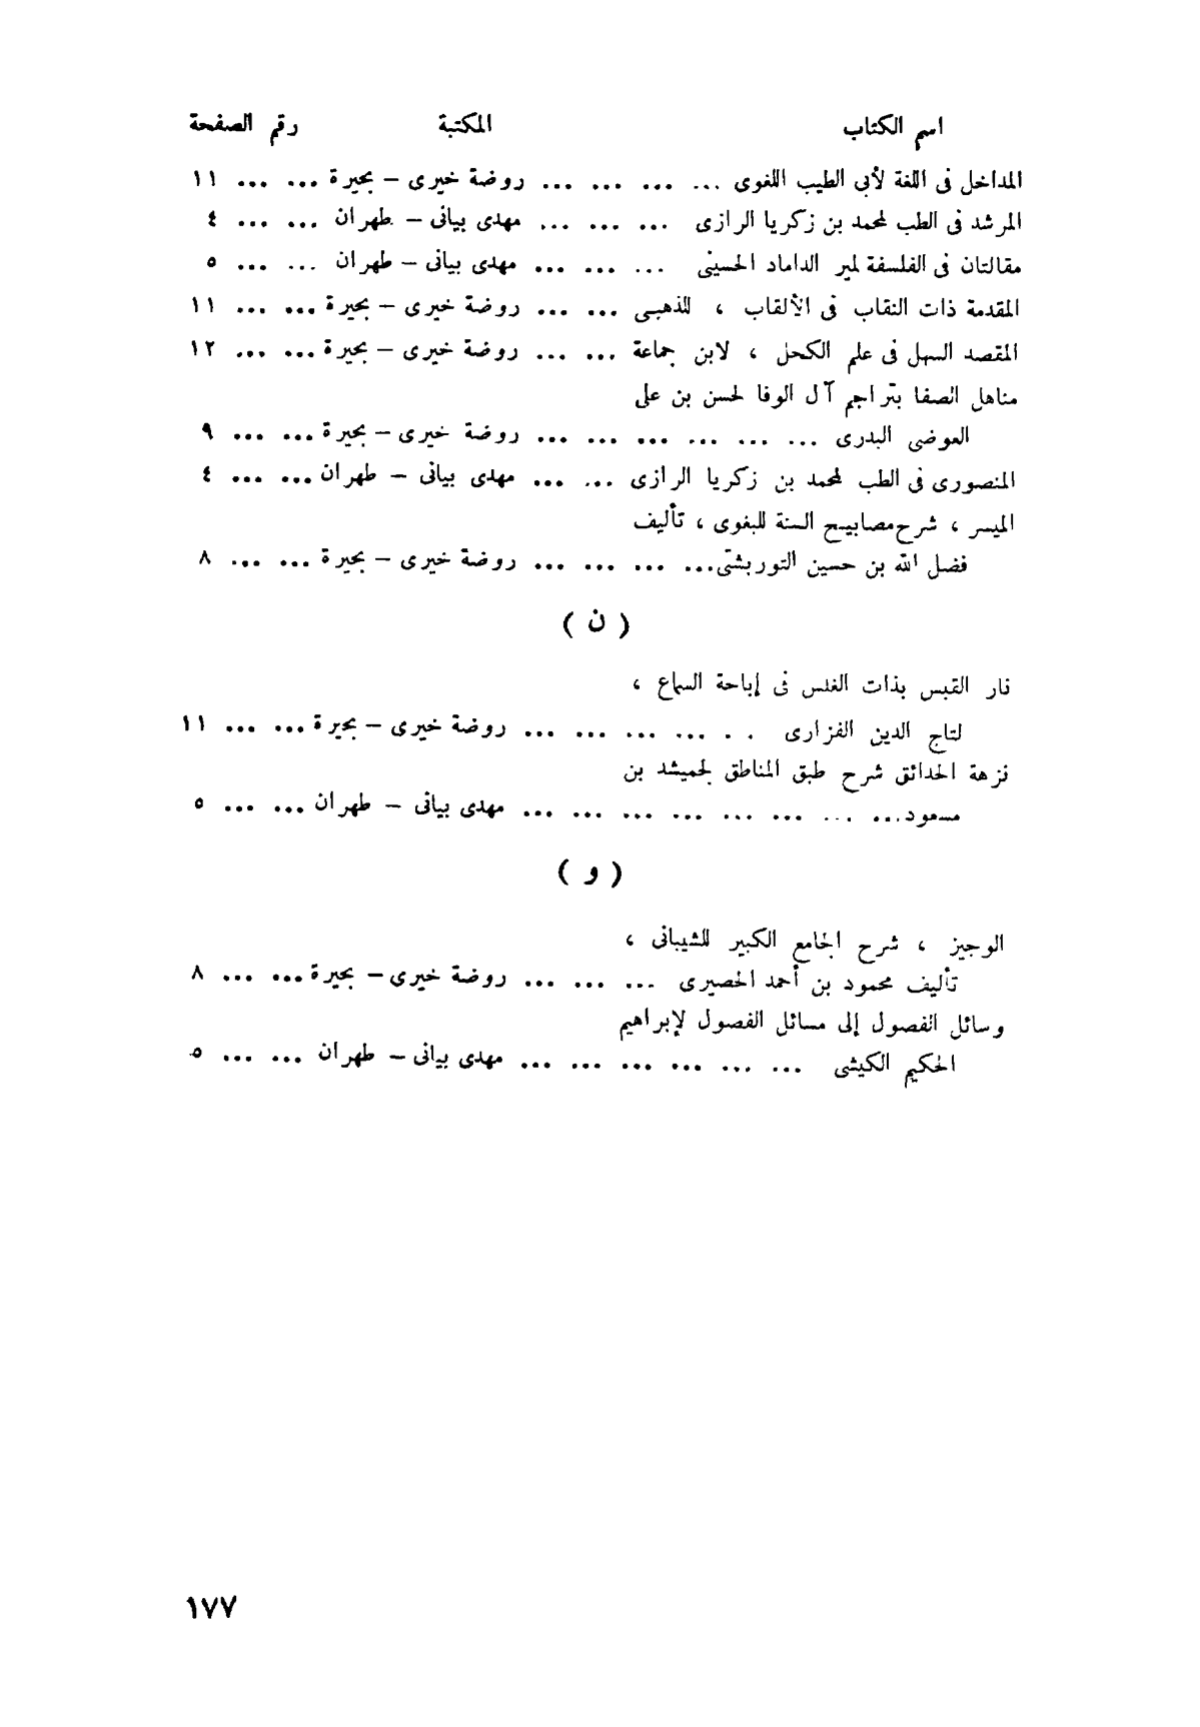 اسم الكتاب المكتبة رقم الصفحة
المداخل فى اللغة لأبى الطيب اللغوى ... ... ... ... روضة خيرى – بحيرة ... ... ١١
المرشد فى الطب لمحمد بن زكريا الرازى ... ... ... مهدى بيانى – طهران ... ... ٤
مقالتان فى الفلسفة لمير الداماد الحسينى ... ... ... مهدى بيانى – طهران ... ... ٥
المقدمة ذات النقاب فى الألقاب ، للذهبى ... ... روضة خيرى – بحيرة ... ... ١١
المقصد السهل فى علم الكحل ، لابن جماعة ... ... روضة خيرى – بحيرة ... ... ١٢
مناهل الصفا بتراجم آل الوفا لحسن بن على
العوضى البدرى ... ... ... ... ... ... روضة خيرى – بحيرة ... ... ٩
المنصورى فى الطب لمحمد بن زكريا الرازى ... ... مهدى بيانى – طهران ... ... ٤
الميسر ، شرح مصابيح السنة للبغوى ، تأليف
فضل الله بن حسين التوربشتى ... ... ... ... روضة خيرى – بحيرة ... ... ٨
( ن )
نار القبس بذات الغلس فى إباحة السماع ،
لتاج الدين الفزارى . . ... ... ... ... روضة خيرى – بحيرة ... ... ١١
نزهة الحدائق شرح طبق المناطق لجميشد بن
مسعود ... ... ... ... ... ... ... ... مهدى بيانى – طهران ... ... ٥
( و )
الوجيز ، شرح الجامع الكبير للشيبانى ،
تأليف محمود بن أحمد الحصيرى ... ... ... روضة خيرى – بحيرة ... ... ٨
وسائل الفصول إلى مسائل الفصول لإبراهيم
الحكيم الكيشى ... ... ... ... ... ... مهدى بيانى – طهران ... ... ٥
١٧٧